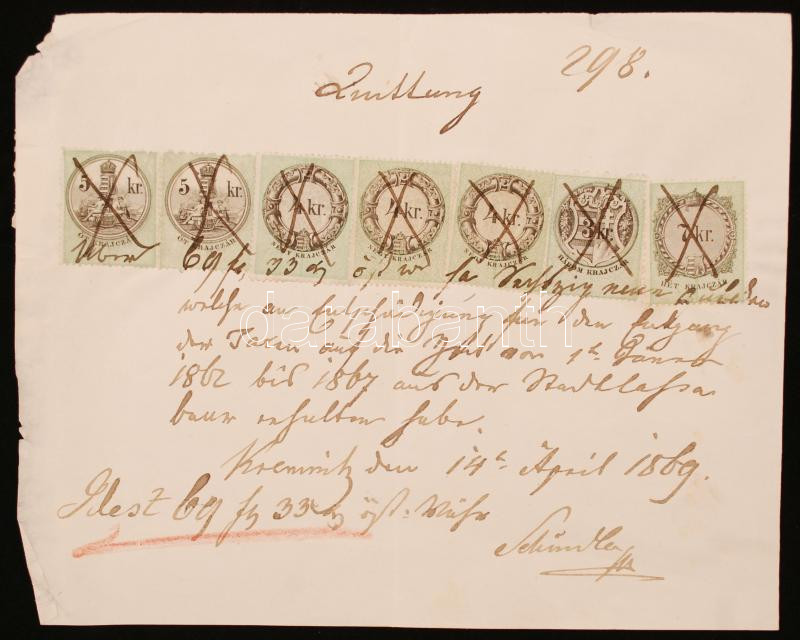 298.
Quittung
5 kr. 5 kr. 4 kr. 4 kr. 4 kr. 3 kr. 7 kr.
ÖT KRAJCZÁR ÖT KRAJCZÁR NÉGY KRAJCZÁR NÉGY KRAJCZÁR NÉGY KRAJCZÁR HÁROM KRAJCZÁR HÉT KRAJCZÁR
Über 69 fl 33 öst w Sechszig neun Gulden
welche an Entschädigung für den Entgang
der Taxen auf die Zeit von 1t Jänner
1862 bis 1867 aus der Stadtkassa
baar erhalten habe.
Kremnitz den 14t April 1869.
Idest 69 fl 33 öst. Währ
Schindler
darabanth